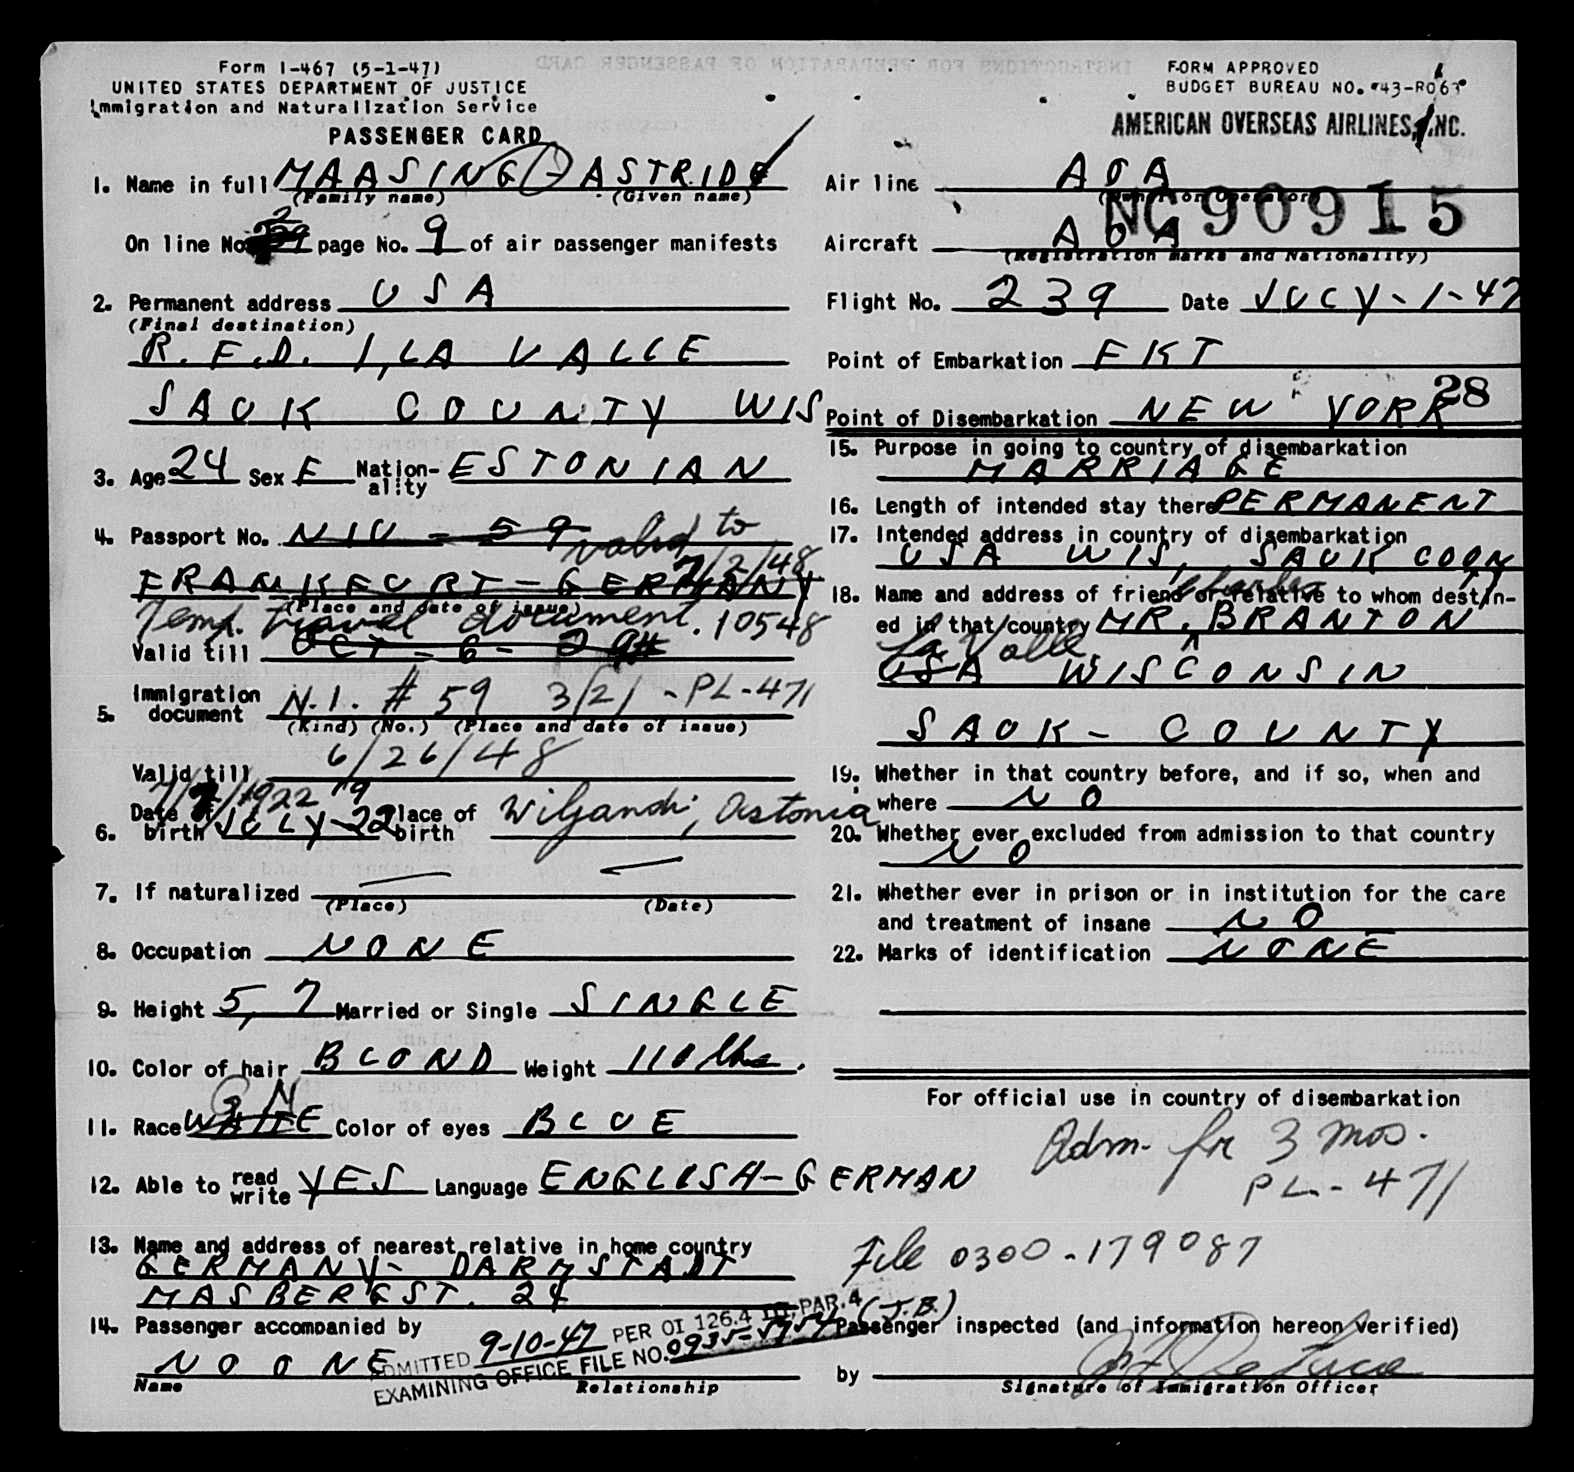 Form I-467 (5-1-47)
UNITED STATES DEPARTMENT OF JUSTICE
Immigration and Naturalization Service
PASSENGER CARD
1. Name in full MAASING - ASTRIDE
(Family name) (Given name)
On line No. 2 page No. 9 of air passenger manifests
2. Permanent address USA
(Final destination)
R.F.D. 1, LA VALLE
SAUK COUNTY WIS
3. Age 24 Sex F Nation-ality ESTONIAN
4. Passport No. NIV - 59 valid to
7/2/48
FRANKFURT - GERMANY
(Place and date of issue)
Temp. travel document. 10548
Valid till OCT - 6 -
5. Immigration document N.I. # 59 3/21 - PL-471
(Kind) (No.) (Place and date of issue)
Valid till 6/26/48
7/ /1922
6. Date of birth JULY-22 Place of birth Wiljandi, Astonia
7. If naturalized
(Place) (Date)
8. Occupation NONE
9. Height 5,7 Married or Single SINGLE
10. Color of hair BLOND Weight 110 lbs.
11. Race WHITE Color of eyes BLUE
12. Able to read write YES Language ENGLISH-GERMAN
13. Name and address of nearest relative in home country
GERMANY- DARMSTADT
MASBERGST. 24
14. Passenger accompanied by
NO ONE
Name Relationship
ADMITTED 9-10-47 PER OI 126.4 PAR. 4 (J.B.)
EXAMINING OFFICE FILE NO.
FORM APPROVED
BUDGET BUREAU NO. 43-R063
AMERICAN OVERSEAS AIRLINES, INC.
Air line AOA
NC90915
Aircraft AOA
(Registration marks and Nationality)
Flight No. 239 Date JULY-1-47
Point of Embarkation FKT
28
Point of Disembarkation NEW YORK
15. Purpose in going to country of disembarkation
MARRIAGE
16. Length of intended stay there PERMANENT
17. Intended address in country of disembarkation
USA WIS, SAUK COUNTY
18. Name and address of friend or relative to whom destin-
ed in that country MR. Charles BRANTON
La Valle
USA WISCONSIN
SAUK - COUNTY
19. Whether in that country before, and if so, when and
where NO
20. Whether ever excluded from admission to that country
NO
21. Whether ever in prison or in institution for the care
and treatment of insane NO
22. Marks of identification NONE
For official use in country of disembarkation
Adm. for 3 mos.
PL-471
File 0300-179087
Passenger inspected (and information hereon verified)
by
Signature of Immigration Officer